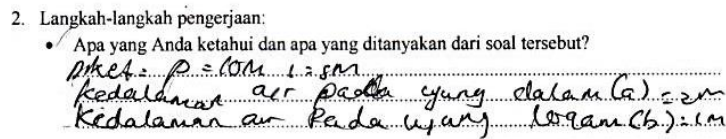 2. Langkah-langkah pengerjaan:
• Apa yang Anda ketahui dan apa yang ditanyakan dari soal tersebut?
Diket: p = 10m l = 5m
Kedalaman air pada ujung dalam (a) = 2m
Kedalaman air Pada ujung (b) = 1m